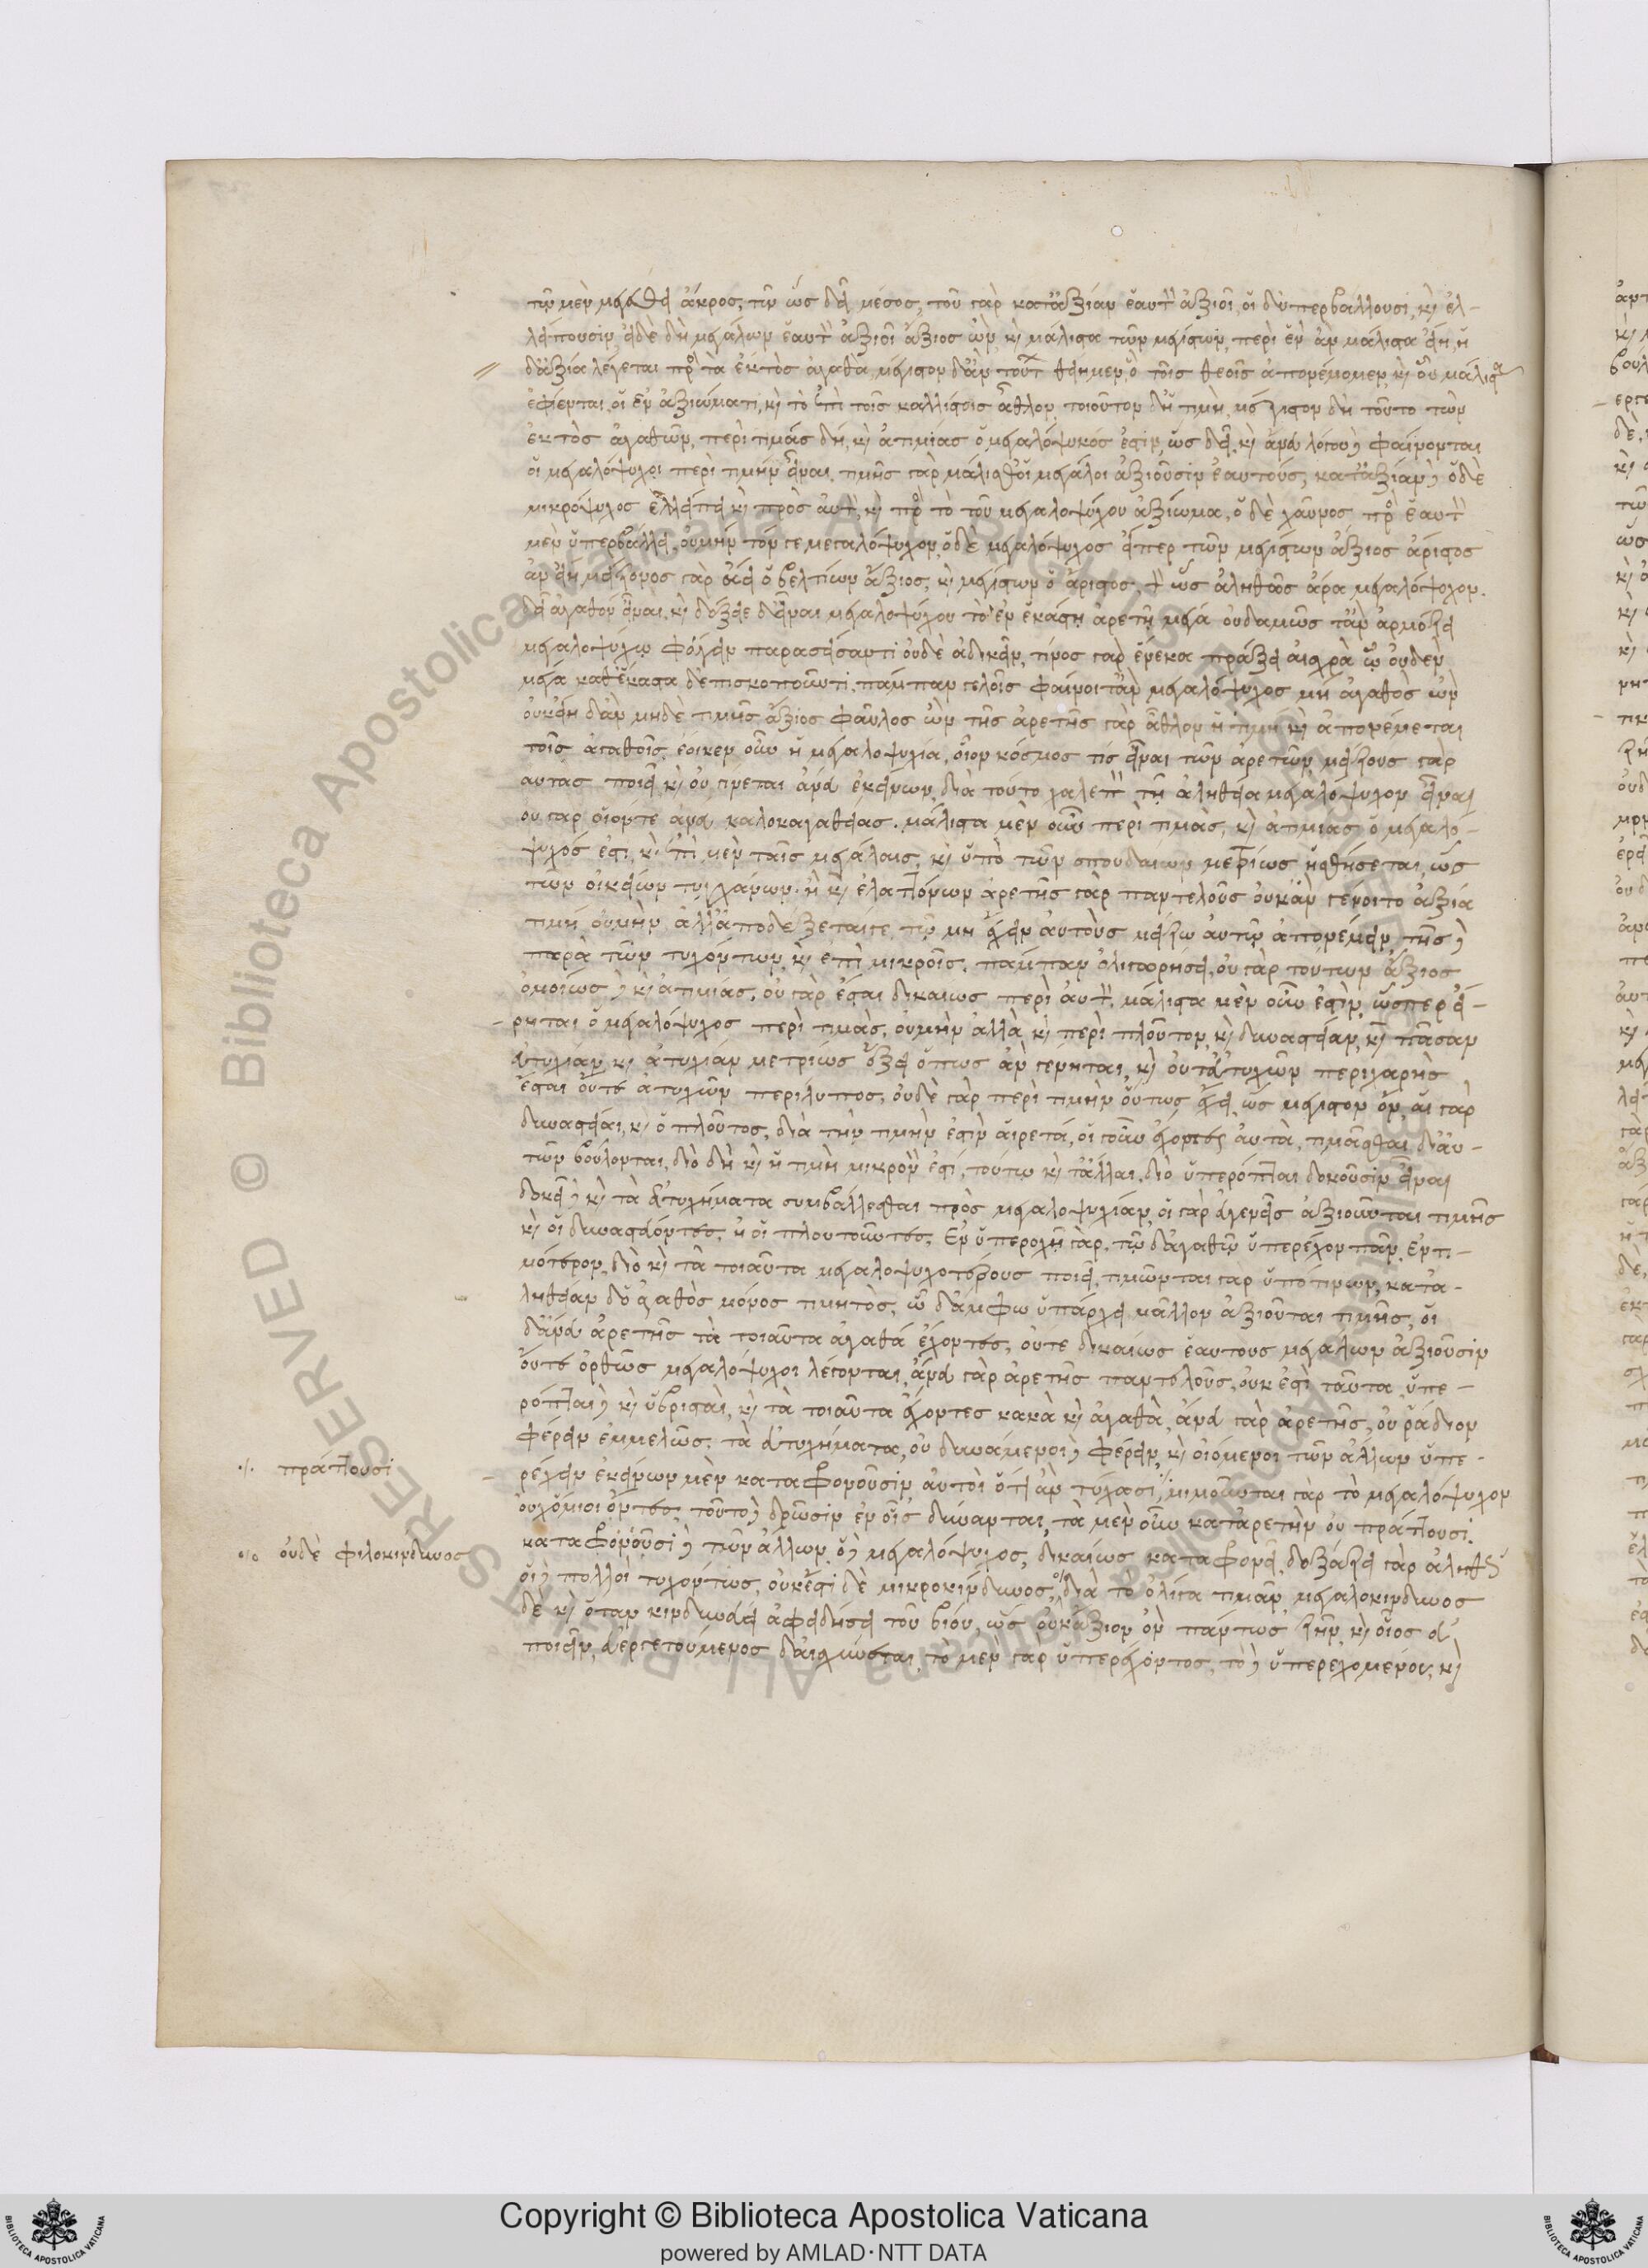 τῷ μὲν μεγέθει ἄκρος, τῷ ὡς δεῖ μέσος, τοῦ γὰρ κατ' ἀξίαν ἑαυτὸν ἀξιοῖ, οἱ δ' ὑπερβάλλουσι, καὶ ἐλ-
λείπουσιν, εἰ δὲ δὴ μεγάλων ἑαυτὸν ἀξιοῖ ἄξιος ὢν καὶ μάλιστα τῶν μεγίστων, περὶ ἓν ἂν μάλιστα εἴη, ἡ
δ' ἀξία λέγεται πρὸς τὰ ἐκτὸς ἀγαθά, μέγιστον δ' ἂν τοῦτ θείημεν, ὃ τοῖς θεοῖς ἀπονέμομεν, καὶ οὗ μάλιστα
ἐφίενται οἱ ἐν ἀξιώματι, καὶ τὸ ἐπὶ τοῖς καλλίστοις ἆθλον, τοιοῦτον δ' ἡ τιμή, μέγιστον δὴ τοῦτο τῶν
ἐκτὸς ἀγαθῶν, περὶ τιμὰς δή, καὶ ἀτιμίας ὁ μεγαλόψυχός ἐστιν, ὡς δεῖ, καὶ ἄνευ λόγου δὲ φαίνονται
οἱ μεγαλόψυχοι περὶ τιμὴν εἶναι, τιμῆς γὰρ μάλισθ' οἱ μεγάλοι ἀξιοῦσιν ἑαυτούς, κατ' ἀξίαν δὲ, ὁ δὲ
μικρόψυχος ἐλλείπει καὶ πρὸς αὑτὸν, καὶ πρὸς τὸ τοῦ μεγαλοψύχου ἀξίωμα, ὁ δὲ χαῦνος πρὸς ἑαυτὸν
μὲν ὑπερβάλλει, οὐ μὴν τόν γε μεγαλόψυχον, ὁ δὲ μεγαλόψυχος εἴπερ τῶν μεγίστων ἄξιος ἄριστος
ἂν εἴη μείζονος γὰρ ἀεὶ ὁ βελτίων ἄξιος, καὶ μεγίστων ὁ ἄριστος, τὸν ὡς ἀληθῶς ἄρα μεγαλόψυχον.
δεῖ ἀγαθὸν εἶναι, καὶ δόξειε δ' εἶναι μεγαλοψύχου τὸ ἐν ἑκάστῃ ἀρετῇ μέγα οὐδαμῶς τ' ἂν ἁρμόζει
μεγαλοψύχῳ φεύγειν παρασείσαντι οὐδὲ ἀδικεῖν, τίνος γὰρ ἕνεκα πράξει αἰσχρὰ ᾧ οὐδὲν
μέγα καθ' ἕκαστα δ' ἐπισκοποῦντι, πάμπαν γελοῖς φαίνοιτ' ἂν μεγαλόψυχος μὴ ἀγαθὸς ὢν
οὐκ εἴη δ' ἂν μηδὲ τιμῆς ἄξιος φαῦλος ὢν τῆς ἀρετῆς γὰρ ἆθλον ἡ τιμή, καὶ ἀπονέμεται
τοῖς ἀγαθοῖς, ἔοικεν οὖν ἡ μεγαλοψυχία, οἷον κόσμος τίς εἶναι τῶν ἀρετῶν, μείζους γὰρ
αὐτὰς ποιεῖ, καὶ οὐ γίνεται ἄνευ ἐκείνων, διὰ τοῦτο χαλεπὸν τῇ ἀληθείᾳ μεγαλόψυχον εἶναι
οὐ γὰρ οἷόν τε ἄνευ καλοκαγαθίας. μάλιστα μὲν οὖν περὶ τιμὰς, καὶ ἀτιμίας ὁ μεγαλό-
ψυχός ἐστι, καὶ ἐπὶ μὲν ταῖς μεγάλαις, καὶ ὑπὸ τῶν σπουδαίων μετρίως ἡσθήσεται, ὡς
τῶν οἰκείων τυγχάνων· ἢ καὶ ἐλαττόνων ἀρετῆς γὰρ παντελοῦς οὐκ ἂν γένοιτο ἀξία
τιμή οὐ μὴν ἀλλ' ἀποδέξεταί γε τῷ μὴ ἔχειν αὐτοὺς μείζω αὐτῷ ἀπονέμειν, τῆς δὲ
παρὰ τῶν τυχόντων, καὶ ἐπὶ μικροῖς, πάμπαν ὀλιγωρήσει, οὐ γὰρ τούτων ἄξιος
ὁμοίως δὲ καὶ ἀτιμίας, οὐ γὰρ ἔσται δικαίως περὶ αὐτὸν. μάλιστα μὲν οὖν ἐστὶν, ὥσπερ εἴ-
ρηται ὁ μεγαλόψυχος περὶ τιμὰς, οὐ μὴν ἀλλὰ καὶ περὶ πλοῦτον, καὶ δυναστείαν, καὶ πᾶσαν
εὐτυχίαν καὶ ἀτυχίαν μετρίως ἕξει ὅπως ἂν γένηται, καὶ οὔτ' εὐτυχῶν περιχαρὴς
ἔσται οὔτε ἀτυχῶν περίλυπος, οὐδὲ γὰρ περὶ τιμὴν οὕτως ἔχει, ὡς μέγιστον ὄν, αἱ γὰρ
δυναστεῖαι, καὶ ὁ πλοῦτος, διὰ τὴν τιμήν ἐστιν αἱρετά, οἱ γοῦν ἔχοντες αὐτὰ, τιμᾶσθαι δι' αὐ-
τῶν βούλονται, διὸ δὴ καὶ ἡ τιμὴ μικρόν ἐστι, τούτῳ καὶ τἆλλαι, διὸ ὑπερόπται δοκοῦσιν εἶναι
δοκεῖ δὲ καὶ τὰ εὐτυχήματα συμβάλλεσθαι πρὸς μεγαλοψυχίαν, οἱ γὰρ εὐγενεῖς ἀξιοῦνται τιμῆς
καὶ οἱ δυναστεύοντες, ἢ οἱ πλουτοῦντες, ἐν ὑπεροχῇ γὰρ, τῷ δ' ἀγαθῷ ὑπερέχον πᾶν, ἐντι-
μότερον, διὸ καὶ τὰ τοιαῦτα μεγαλοψυχοτέρους ποιεῖ, τιμῶνται γὰρ ὑπό τινων, κατ' ἀ-
λήθειαν δ' ὁ ἀγαθὸς μόνος τιμητός, ᾧ δ' ἄμφω ὑπάρχει μᾶλλον ἀξιοῦται τιμῆς, οἱ
δ' ἄνευ ἀρετῆς τὰ τοιαῦτα ἀγαθὰ ἔχοντες, οὔτε δικαίως ἑαυτοὺς μεγάλων ἀξιοῦσιν
οὔτε ὀρθῶς μεγαλόψυχοι λέγονται, ἄνευ γὰρ ἀρετῆς παντελοῦς, οὐκ ἔστι ταῦτα, ὑπε-
ρόπται δὲ καὶ ὑβρισταί, καὶ τὰ τοιαῦτα ἔχοντες κακὰ καὶ ἀγαθὰ, ἄνευ γὰρ ἀρετῆς, οὐ ῥᾴδιον
φέρειν ἐμμελῶς τὰ εὐτυχήματα, οὐ δυνάμενοι δὲ φέρειν, καὶ οἰόμενοι τῶν ἄλλων ὑπε-
ρέχειν ἐκείνων μὲν καταφρονοῦσιν αὐτοὶ ὅτι ἂν τύχωσι, μιμοῦνται γὰρ τὸ μεγαλόψυχον
οὐχ ὅμοιοι ὄντες, τοῦτο δὲ δρῶσιν ἐν οἷς δύνανται, τὰ μὲν οὖν κατ' ἀρετὴν οὐ πράττουσι.
καταφρονοῦσι δὲ τῶν ἄλλων, ὁ δὲ μεγαλόψυχος, δικαίως καταφρονεῖ, δοξάζει γὰρ ἀληθῶς
οἱ δὲ πολλοὶ τυχόντως, οὐκ ἔστι δὲ μικροκίνδυνος, διὰ τὸ ὀλίγα τιμᾶν, μεγαλοκίνδυνος
δὲ καὶ ὅταν κινδυνεύῃ ἀφειδήσει τοῦ βίου, ὡς οὐκ ἄξιον ὂν πάντως ζῆν, καὶ οἷος εὖ
ποιεῖν, εὐεργετούμενος δ' αἰσχύνεται, τὸ μὲν γὰρ ὑπερέχοντος, τὸ δὲ ὑπερεχομένου, καὶ
πράττουσι
οὐδὲ φιλοκίνδυνος
Copyright © Biblioteca Apostolica Vaticana
powered by AMLAD·NTT DATA